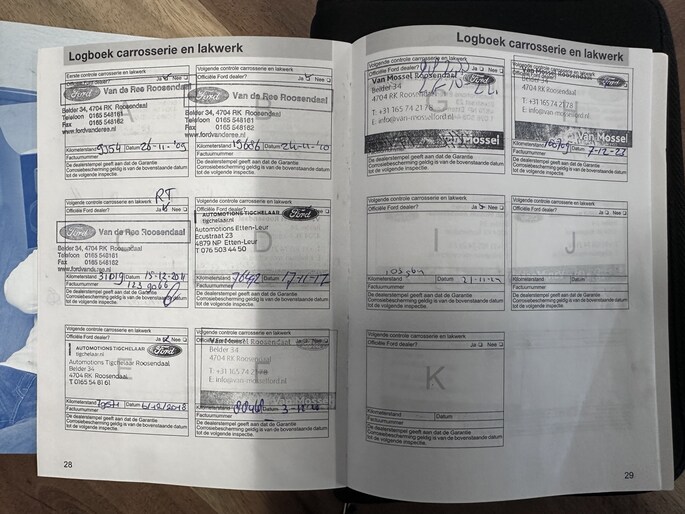 Logboek carrosserie en lakwerk
Eerste controle carrosserie en lakwerk
Officiële Ford dealer? Ja Nee
Ford Van de Ree Roosendaal
Belder 34, 4704 RK Roosendaal
Telefoon 0165 548161
Fax 0165 548162
www.fordvanderee.nl
Kilometerstand 9354 Datum 26-11-'09
Factuurnummer
De dealerstempel geeft aan dat de Garantie
Corrosiebescherming geldig is van de bovenstaande datum
tot de volgende inspectie.
Volgende controle carrosserie en lakwerk
Officiële Ford dealer? Ja Nee
B
Ford Van de Ree Roosendaal
Belder 34, 4704 RK Roosendaal
Telefoon 0165 548161
Fax 0165 548162
www.fordvanderee.nl
Kilometerstand Datum 24-11-'10
Factuurnummer
De dealerstempel geeft aan dat de Garantie
Corrosiebescherming geldig is van de bovenstaande datum
tot de volgende inspectie.
Volgende controle carrosserie en lakwerk
Officiële Ford dealer? Ja Nee
Ford Van de Ree Roosendaal
Belder 34, 4704 RK Roosendaal
Telefoon 0165 548161
Fax 0165 548162
www.fordvanderee.nl
Kilometerstand 31019 Datum 15-12-2011
Factuurnummer
De dealerstempel geeft aan dat de Garantie
Corrosiebescherming geldig is van de bovenstaande datum
tot de volgende inspectie.
Volgende controle carrosserie en lakwerk
Officiële Ford dealer? Ja Nee
D
AUTOMOTIONS TIGCHELAAR Ford
tigchelaar.nl
Automotions Etten-Leur
Ecustraat 23
4879 NP Etten-Leur
T 076 503 44 50
Kilometerstand Datum 17-11-17
Factuurnummer
De dealerstempel geeft aan dat de Garantie
Corrosiebescherming geldig is van de bovenstaande datum
tot de volgende inspectie.
Volgende controle carrosserie en lakwerk
Officiële Ford dealer? Ja Nee
E
AUTOMOTIONS TIGCHELAAR Ford
tigchelaar.nl
Automotions Tigchelaar Roosendaal
Belder 34
4704 RK Roosendaal
T 0165 54 81 61
Kilometerstand Datum 6/12/2018
Factuurnummer
De dealerstempel geeft aan dat de Garantie
Corrosiebescherming geldig is van de bovenstaande datum
tot de volgende inspectie.
Volgende controle carrosserie en lakwerk
Van Mossel Roosendaal Ford
Belder 34
4704 RK Roosendaal
T: +31 165 74 21
E: info@van-mosselford.nl
Van Mossel
Kilometerstand Datum
Factuurnummer
De dealerstempel geeft aan dat de Garantie
Corrosiebescherming geldig is van de bovenstaande datum
tot de volgende inspectie.
28
Logboek carrosserie en lakwerk
Volgende controle carrosserie en lakwerk
Officiële Ford dealer?
G
Van Mossel Roosendaal Ford
Belder 34
4704 RK Roosendaal
T: +31 165 74 21 78
E: info@van-mosselford.nl
Van Mossel
De dealerstempel geeft aan dat de Garantie
Corrosiebescherming geldig is van de bovenstaande datum
tot de volgende inspectie.
Volgende controle carrosserie en lakwerk
H
Van Mossel Roosendaal Ford
Belder 34
4704 RK Roosendaal
T: +31 165 74 21 78
E: info@van-mosselford.nl
Van Mossel
Kilometerstand Datum 7-12-23
Factuurnummer
De dealerstempel geeft aan dat de Garantie
Corrosiebescherming geldig is van de bovenstaande datum
tot de volgende inspectie.
Volgende controle carrosserie en lakwerk
Officiële Ford dealer? Ja Nee
I
Kilometerstand Datum
Factuurnummer
De dealerstempel geeft aan dat de Garantie
Corrosiebescherming geldig is van de bovenstaande datum
tot de volgende inspectie.
Volgende controle carrosserie en lakwerk
Officiële Ford dealer? Ja Nee
J
Kilometerstand Datum
Factuurnummer
De dealerstempel geeft aan dat de Garantie
Corrosiebescherming geldig is van de bovenstaande datum
tot de volgende inspectie.
Volgende controle carrosserie en lakwerk
Officiële Ford dealer? Ja Nee
K
Kilometerstand Datum
Factuurnummer
De dealerstempel geeft aan dat de Garantie
Corrosiebescherming geldig is van de bovenstaande datum
tot de volgende inspectie.
29